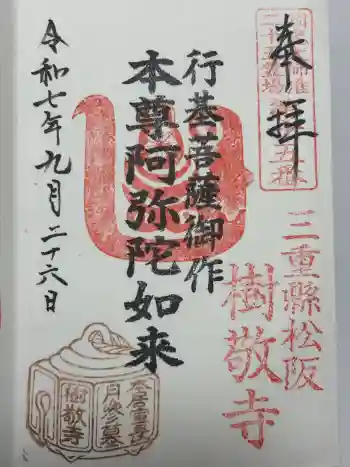 奉拝
三重縣松阪
樹敬寺
行基菩薩御作
本尊阿弥陀如来
令和七年九月二十六日
本居宣長
樹敬寺